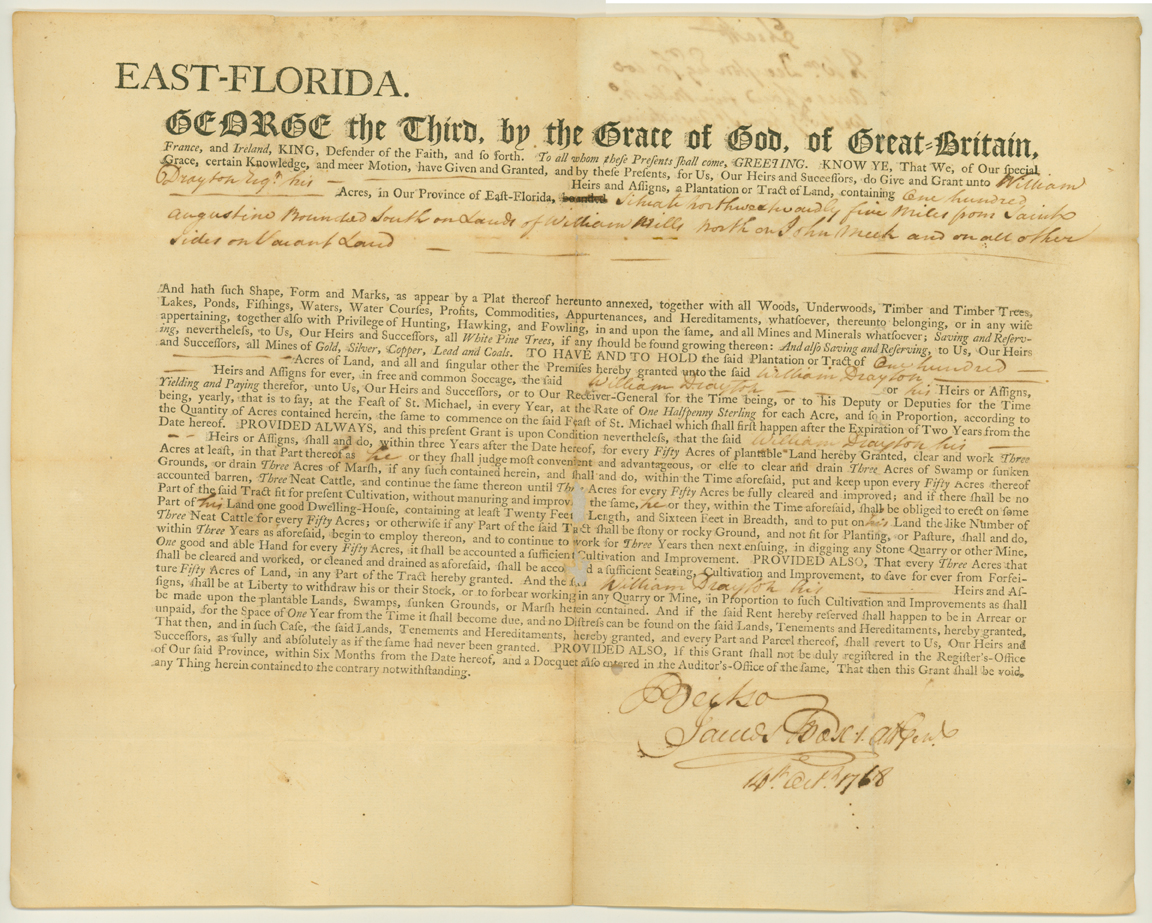 EAST-FLORIDA.
GEORGE the Third, by the Grace of God, of Great-Britain,
France, and Ireland, KING, Defender of the Faith, and so forth. To all whom theſe Preſents ſhall come, GREETING. KNOW YE, That We, of Our ſpecial
Grace, certain Knowledge, and meer Motion, have Given and Granted, and by theſe Preſents, for Us, Our Heirs and Succeſſors, do Give and Grant unto William
Drayton Esqr. his Heirs and Aſſigns, a Plantation or Tract of Land, containing One hundred
Acres, in Our Province of Eaſt-Florida, bounded Situate northweſtwardly five Miles from Saint
Augustine Bounded South on Lands of William Mills North on John Meek and on all other
Sides on Vacant Land
And hath ſuch Shape, Form and Marks, as appear by a Plat thereof hereunto annexed, together with all Woods, Underwoods, Timber and Timber Trees,
Lakes, Ponds, Fiſhings, Waters, Water Courſes, Profits, Commodities, Appurtenances, and Hereditaments, whatſoever, thereunto belonging, or in any wiſe
appertaining, together alſo with Privilege of Hunting, Hawking, and Fowling, in and upon the ſame, and all Mines and Minerals whatſoever; Saving and Reſerv-
ing, nevertheleſs, to Us, Our Heirs and Succeſſors, all White Pine Trees, if any ſhould be found growing thereon: And alſo Saving and Reſerving, to Us, Our Heirs
and Succeſſors, all Mines of Gold, Silver, Copper, Lead and Coals. TO HAVE AND TO HOLD the ſaid Plantation or Tract of One hundred
Acres of Land, and all and ſingular other the Premiſes hereby granted unto the ſaid William Drayton
Heirs and Aſſigns for ever, in free and common Soccage, the ſaid William Drayton or his Heirs or Aſſigns,
Yielding and Paying therefor, unto Us, Our Heirs and Succeſſors, or to Our Receiver-General for the Time being, or to his Deputy or Deputies for the Time
being, yearly, that is to ſay, at the Feaſt of St. Michael, in every Year, at the Rate of One Halfpenny Sterling for each Acre, and ſo in Proportion, according to
the Quantity of Acres contained herein, the ſame to commence on the ſaid Feaſt of St. Michael which ſhall firſt happen after the Expiration of Two Years from the
Date hereof. PROVIDED ALWAYS, and this preſent Grant is upon Condition nevertheleſs, that the ſaid William Drayton his
Heirs or Aſſigns, ſhall and do, within three Years after the Date hereof, for every Fifty Acres of plantable Land hereby Granted, clear and work Three
Acres at leaſt, in that Part thereof as he or they ſhall judge moſt convenient and advantageous, or elſe to clear and drain Three Acres of Swamp or ſunken
Grounds, or drain Three Acres of Marſh, if any ſuch contained herein, and ſhall and do, within the Time aforeſaid, put and keep upon every Fifty Acres thereof
accounted barren, Three Neat Cattle, and continue the ſame thereon until Three Acres for every Fifty Acres be fully cleared and improved; and if there ſhall be no
Part of the ſaid Tract fit for preſent Cultivation, without manuring and improving the ſame, he or they, within the Time aforeſaid, ſhall be obliged to erect on ſome
Part of his Land one good Dwelling-Houſe, containing at leaſt Twenty Feet Length, and Sixteen Feet in Breadth, and to put on his Land the like Number of
Three Neat Cattle for every Fifty Acres; or otherwiſe if any Part of the ſaid Tract ſhall be ſtony or rocky Ground, and not fit for Planting, or Paſture, ſhall and do,
within Three Years as aforeſaid, begin to employ thereon, and to continue to work for Three Years then next enſuing, in digging any Stone Quarry or other Mine,
One good and able Hand for every Fifty Acres, it ſhall be accounted a ſufficient Cultivation and Improvement. PROVIDED ALSO, That every Three Acres that
ſhall be cleared and worked, or cleaned and drained as aforeſaid, ſhall be accounted a ſufficient Seating, Cultivation and Improvement, to ſave for ever from Forfei-
ture Fifty Acres of Land, in any Part of the Tract hereby granted. And the ſaid William Drayton his Heirs and Aſ-
ſigns, ſhall be at Liberty to withdraw his or their Stock, or to forbear working in any Quarry or Mine, in Proportion to ſuch Cultivation and Improvements as ſhall
be made upon the plantable Lands, Swamps, ſunken Grounds, or Marſh herein contained. And if the ſaid Rent hereby reſerved ſhall happen to be in Arrear or
unpaid, for the Space of One Year from the Time it ſhall become due, and no Diſtreſs can be found on the ſaid Lands, Tenements and Hereditaments, hereby granted,
That then, and in ſuch Caſe, the ſaid Lands, Tenements and Hereditaments, hereby granted, and every Part and Parcel thereof, ſhall revert to Us, Our Heirs and
Succeſſors, as fully and abſolutely as if the ſame had never been granted. PROVIDED ALSO, If this Grant ſhall not be duly regiſtered in the Regiſter's-Office
of Our ſaid Province, within Six Months from the Date hereof, and a Docquet alſo entered in the Auditor's-Office of the ſame, That then this Grant ſhall be void,
any Thing herein contained to the contrary notwithſtanding.
James Box
14th Octr. 1768